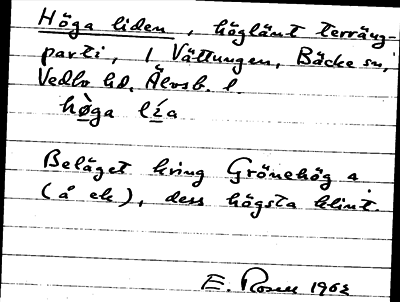 Höga liden, höglänt terräng-
parti, 1 Vättungen, Bäcke sn,
Vedbo hd, Älvsb. l.
hò̱ga lí̱a
Beläget kring Grönehög a
(å ek), dess högsta klint.
E. Rosell 1962